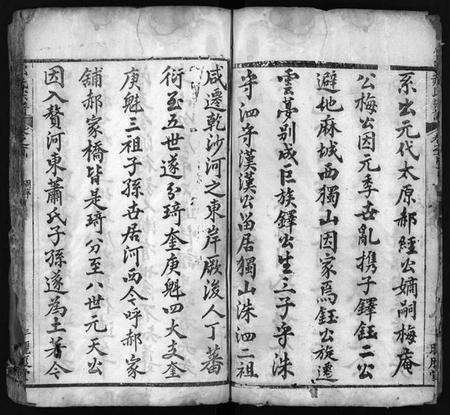 系出元代太原郝經公嫡嗣梅庵
公梅公因元季世亂携子鐸鈺二公
避地麻城西獨山因家焉鈺公旋遷
雲夢别成巨族鐸公生三子守洙
守泗守漢漢公留居獨山洙泗二祖
咸遷乾沙河之東岸厥後人丁蕃
衍至五世遂分琦奎庚魁四大支奎
庚魁三祖子孫世居河西今呼郝家
鋪郝家橋皆是琦分至八世元天公
因入贅河東蕭氏子孫遂為土著今